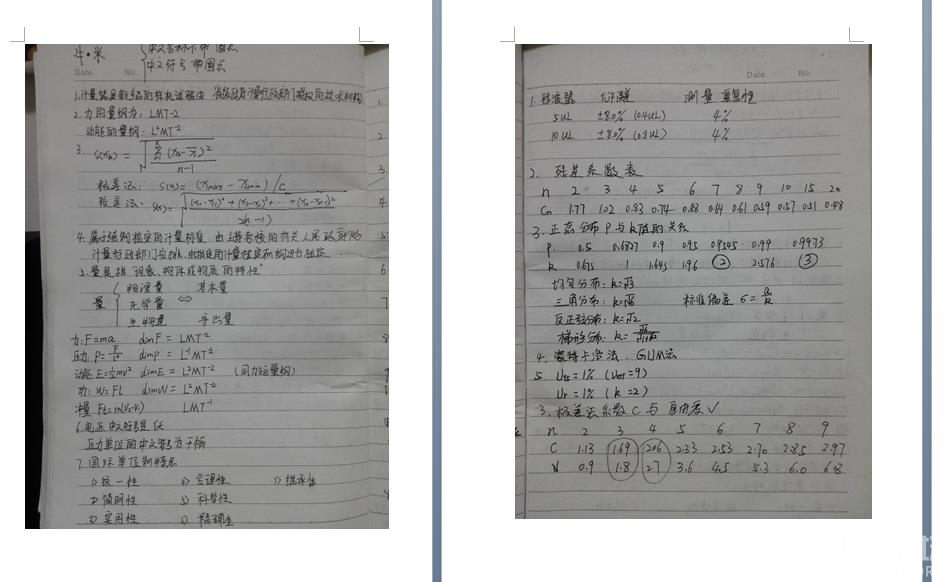 牛·米
中文名称不带圆点
中文符号带圆点
Date. No.
1.计量器具新产品的样机试验由省级政府计量行政部门授权的技术机构
2.力的量纲为: LMT-2
动能的量纲: L²MT⁻²
3. s(xₖ) = √(Σ(xi-x̄)²/(n-1))
极差法: s(x) = (xmax - xmin)/C
较差法: s(x) = √((x₂-x₁)²+(x₃-x₂)²+…+(xn-xn-1)²)/2(n-1)
4.属于强制检定的计量标准,由主持考核的有关人民政府的
计量行政部门安排,由指定的计量检定机构进行检定
5.量是指"现象、物体或物质的特性"
量 物理量 基本量
化学量 ⇔
生物量 导出量
力:F=ma dimF = LMT⁻²
压力 P=F/S dimP = L⁻¹MT⁻²
动能 E=½mv² dimE = L²MT⁻² (同力矩量纲)
功: W=FL dimW = L²MT⁻²
冲量 Ft=m(v₂-v₁) LMT⁻¹
6.电压中文符号是伏
压力单位的中文符号为千帕
7.国际单位制特点
1)统一性 4)合理性 7)继承性
2)简明性 5)科学性
3)实用性 6)精确性
Date. No.
1.移液器 允许误差 测量重复性
5uL ±8.0% (0.4uL) 4%
10uL ±8.0% (0.8uL) 4%
2. 残差系数表
n 2 3 4 5 6 7 8 9 10 15 20
Cn 1.77 1.02 0.83 0.74 0.68 0.64 0.61 0.59 0.57 0.51 0.48
3.正态分布P与k值的关系
P. 0.5 0.6827 0.9 0.95 0.9545 0.99 0.9973
k 0.675 1 1.645 1.96 2 2.576 3
均匀分布: k=√3
三角分布: k=√6 标准偏差 σ=a/k
反正弦分布: k=√2
梯形分布: k=
4. 蒙特卡洛法、GUM法
5. U95=1% (Veff=9)
Ur=1% (k=2)
3.极差法系数C与自由度√
n 2 3 4 5 6 7 8 9
C 1.13 1.69 2.06 2.33 2.53 2.70 2.85 2.97
V 0.9 1.8 2.7 3.6 4.5 5.3 6.0 6.8